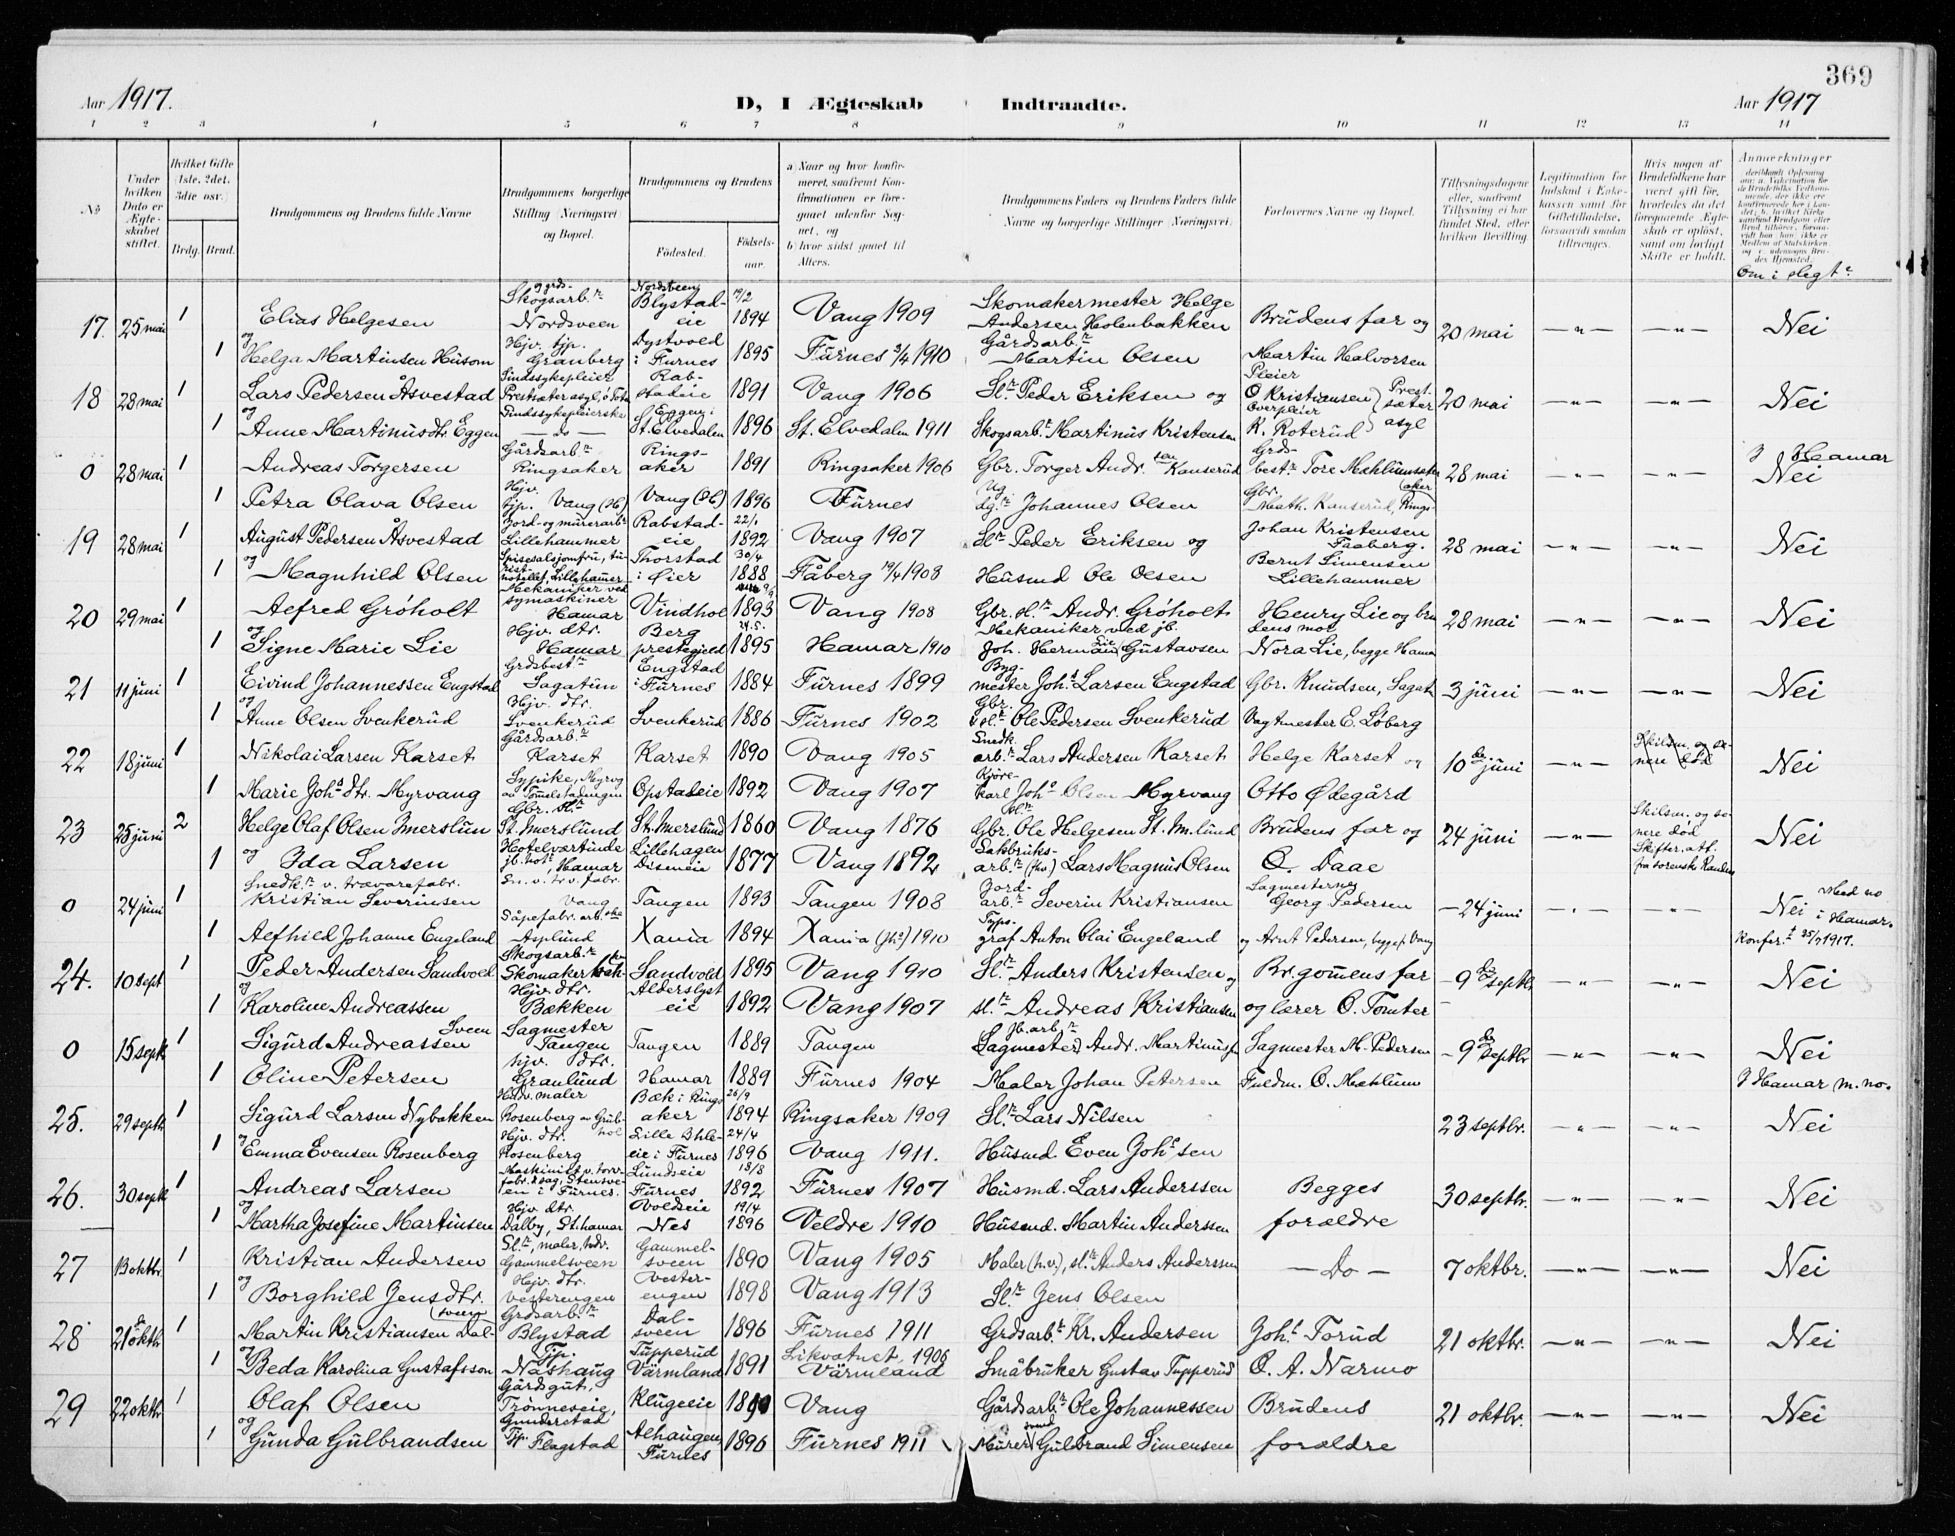 369
Aar 1917.
D, I Ægteskab Indtraadte.
Aar 1917
1 2 3 4 5 6 7 8 9 10 11 12 13 14
No
Under hvilken Dato er Ægteskabet stiftet.
Hvilket Gifte (1ste, 2det, 3die osv.)
Brdg. Brud.
Brudgommens og Brudens fulde Navne
Brudgommens borgerlige Stilling (Næringsvei) og Bopæl.
Brudgommens og Brudens
Fødested. Fødselsaar.
a) Naar og hvor konfirmeret, saafremt Konfirmationen er foregaaet udenfor Sognet, og
b) hvor sidst gaaet til Alters.
Brudgommens Faders og Brudens Faders fulde Navne og borgerlige Stillinger (Næringsvei).
Forlovernes Navne og Bopæl.
Tillysningsdagene eller, saafremt Tillysning ei har fundet Sted, efter hvilken Bevilling.
Legitimation for Indskud i Enkekassen samt for Giftetilladelse, forsaavidt saadan tiltrænges.
Hvis nogen af Brudefolkene har været gift før, hvorledes da det foregaaende Ægteskab er opløst, samt om lovligt Skifte er holdt.
Anmerkninger
Om i slegt
17. 25 mai 1 Elias Helgesen Skogsarb. Nordsveen Blystadeie 19/2 1894 Vang 1909 Skomakermester Helge Andersen Holenbakken Brudens far og 20 mai Nei
og 1 Helga Martinsen Husom Hjv. tjp. Granberg Dystvold i Furnes 1895 Furnes 3/4 1910 Gårdsarb. Martin Olsen Martin Halvorsen
18 28 mai 1 Lars Pedersen Åsvestad Sindssykepleier Rabstadeie 1891 Vang 1906 Sl. Peder Eriksen og Pleier O Kristiansen Prestsæter asyl 20 mai Nei
og 1 Anne Martinusdtr. Eggen Sindssykepleierske - do - Eggen i St. Elvedalen 1896 St. Elvedalen 1911 Skogsarb. Martinus Kristensen Overpleier K. Roterud
0 28 mai 1 Andreas Torgersen Gårdsarb. Ringsaker Ringsaker 1891 Ringsaker 1906 Gbr. Torger Andr.sen Kanserud Grdbest. Tore Mæhlum 28 mai I Hamar Nei
1 Petra Olava Olsen Hjv. tjp. Vang (H) Vang (H) 1896 Furnes Johannes Olsen Gbr. Math. Kanserud, Ringsaker
19 28 mai 1 August Pedersen Åsvestad Jord- og murerarb. Lillehammer Rabstadeie 22/1 1892 Vang 1907 Sl. Peder Eriksen og Johan Kristensen Faaberg. 28 mai Nei
og 1 Magnhild Olsen Thorstad i Øier 30/4 1888 Fåberg 19/4 1903 Husmd Ole Olsen Bernt Simensen Lillehammer
20 29 mai 1 Alfred Gröholt Mekaniker ved symaskiner Hamar Vindhol 1893 Vang 1908 Gbr. sl. Andr. Gröholt Henry Lie og brudens mor 28 mai Nei
og 1 Signe Marie Lie Hjv. dtr. Hamar Berg prestegjeld 24.5. 1895 Hamar 1910 Mekaniker ved jb. Joh. Herman Lie Gustavsen Nora Lie, begge Hamar
21 11 juni 1 Eivind Johannessen Engstad Grdbest. Sagatun Engstad i Furnes 1884 Furnes 1899 Bygmester Joh. Larsen Engstad Gbr. Knudsen, Sagat. 3 juni Nei
og 1 Anne Olsen Svenkerud Hjv. dtr. Svenkerud Svenkerud 1886 Furnes 1902 Gbr. Ole Pedersen Svenkerud Vagtmester E. Løberg
22 18 juni 1 Nikolai Larsen Karset Gårdsarb. Karset Karset 1890 Vang 1905 Snedk. arb. Lars Andersen Karset Helge Karset og 10de juni Nei
1 Marie Joh.s dtr. Myrvang Sypike, Myrvg Opstadeie 1892 Vang 1907 Kjørekarl Joh.s Olsen Myrvang Otto Ødegård
23 25 juni 2 Helge Olaf Olsen Imerslun Gbr. St. Imerslund St. Imerslund 1860 Vang 1876 Gbr. Ole Helgesen St. Im.lund Brudens far og 24 juni Skilsm. og senere død Nei
og 1 Ida Larsen Hotelværtinde jb. hot., Hamar Lillehagen Diseneie 1877 Vang 1892 Sakbruksarb. (hv) Lars Magnus Olsen O. Daae
0 24 juni 1 Kristian Severinsen Snedk. v. trævarefabr. Vang Tangen 1893 Tangen 1908 Jordarb. Severin Kristiansen Sagmesterne Georg Pedersen 24 juni Nei i Hamar.
1 Alfhild Johanne Engeland Såpefabr. arb.ske Asplund Xania 1894 Xania 1910 Typograf Anton Olai Engeland og Arnt Pedersen, begge p. Vang Konfer. 25/7 1917.
24. 10 sept 1 Peder Andersen Sandvold Skogsarb. Skomakerbek. Sandvold 1895 Vang 1910 Sl. Anders Kristensen og Br.gommens far 9de septbr Nei
og 1 Karoline Andreassen Hjv. dtr. Bækken Alderslysteie 1892 Vang 1907 sl. Andreas Kristiansen og lærer O. Tomter
0 15 septb 1 Sigurd Andreassen Sveen Sagmester Tangen Tangen 1889 Tangen jb. arb. Sagmester Andr. Martinus Sagmester M. Pedersen 9de septbr Nei
1 Oline Petersen hjv. dtr. Granlund Hamar 1889 Furnes 1904 Maler Johan Petersen Fuldm. O. Mæhlum I Hamar m. no.
25. 29 septb 1 Sigurd Larsen Nybakken Hdv. maler Rosenberg Bæk i Ringsaker 26/9 1894 Ringsaker 1909 Sl. Lars Nilsen 23 septbr. Nei
og 1 Emma Evensen Rosenberg Hjv. dtr. Rosenberg eie i Furnes 24/4 1896 Vang 1911. Husmd. Even Joh.sen
26. 30 septb 1 Andreas Larsen Lundseie Furnes 18/8 1892 Furnes 1907 Husmd. Lars Anderssen Begges 30 septbr. Nei
og 1 Martha Josefine Martinsen Hjv dtr. Dalby, St. hamar Voldseie Nes 19/4 1896 Veldre 1910 Husmd. Martin Anderssen forældre
27 13 oktbr. 1 Kristian Andersen maler, hdv. Gammelsveen Gammelsveen 1890 Vang 1905 Maler (h.v.), sl. Anders Anderssen - Do - 7 oktbr. Nei
og 1 Borghild Jensdtr. Hjv. dtr. Vesterengen Vesterengen 1898 Vang 1913 Sl. Jens Olsen
28 21de oktb 1 Martin Kristiansen Dalsveen Grdsarb. Blystad Dalsveen 1896 Furnes 1911 Grdsarb. Kr. Andersen Joh. Torud 21 oktbr. Nei
og 1 Beda Karolina Gustafsson Tjp. Nashaug Tupperud Värmland 1891 Likvatnet, 1906 Värmland Småbruker Gustav Tupperud O. A. Narmo
29 22 oktb 1 Olaf Olsen Gårdsgut, Trønneseie, Klugeie 1890 Vang Gårdsarb. Ole Johannessen Brudens 21 oktbr. Nei
og 1 Gunda Gulbrandsen Gunderstad Tjp. Flagstad Alhaugen Furnes 1896 Furnes 1911 Murer Gulbrand Simensen forældre